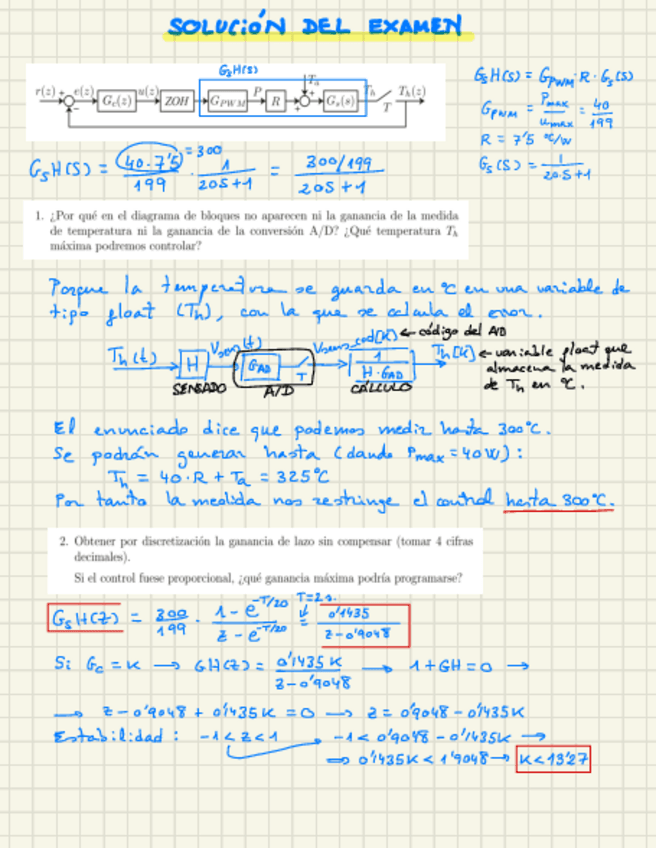 SOLUCIÓN DEL EXAMEN
GsH(s)
r(z) + e(z) Gc(z) u(z) ZOH GPWM P R + Ta + Gs(s) Th T Th(z)
GsH(s) = GPWM · R · Gs(s)
GPWM = Pmax / umax = 40 / 199
R = 7'5 ºC/W
Gs(s) = 1 / 20·s+1
GsH(s) = 40·7'5 / 199 · 1 / 20s+1 = 300/199 / 20s+1
= 300
1. ¿Por qué en el diagrama de bloques no aparecen ni la ganancia de la medida
de temperatura ni la ganancia de la conversión A/D? ¿Qué temperatura Th
máxima podremos controlar?
Porque la temperatura se guarda en ºC en una variable de
tipo float (Th), con la que se calcula el error.
Th(t) H Vsens(t) GAD T Vsens_cod[k] ← código del A/D
1 / H·GAD Th[k] ← variable float que
almacena la medida
de Th en ºC.
SENSADO A/D CÁLCULO
El enunciado dice que podemos medir hasta 300ºC.
Se podrán generar hasta (dando Pmax = 40W):
Th = 40·R + Ta = 325ºC
Por tanto la medida nos restringe el control hasta 300ºC.
2. Obtener por discretización la ganancia de lazo sin compensar (tomar 4 cifras
decimales).
Si el control fuese proporcional, ¿qué ganancia máxima podría programarse?
GsH(z) = 300 / 199 · 1 - e^-T/20 / z - e^-T/20 T=2s. = 0'1435 / z-0'9048
Si Gc = K → GH(z) = 0'1435K / z-0'9048 → 1+GH=0 →
→ z-0'9048 + 0'1435K = 0 → z = 0'9048 - 0'1435K
Estabilidad: -1 < z < 1 → -1 < 0'9048 - 0'1435K →
⇒ 0'1435K < 1'9048 → K < 13'27